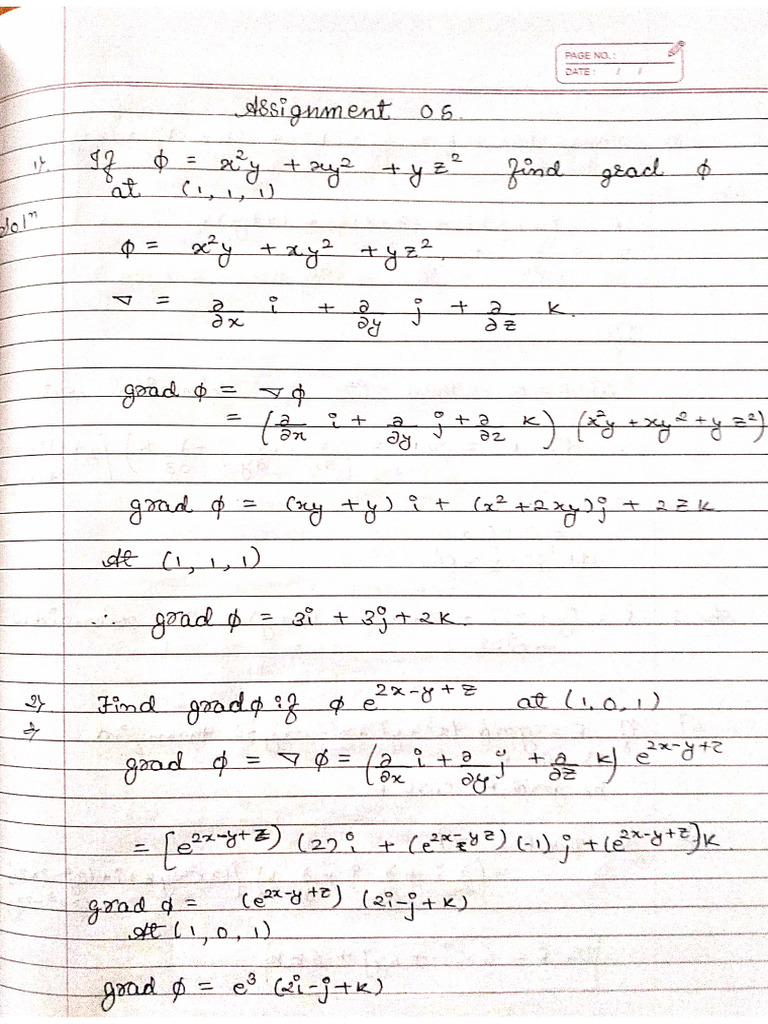 PAGE NO.:
DATE: / /
Assignment 05.
1). If ϕ = x²y + xy² + yz² find grad ϕ
at (1, 1, 1)
Solⁿ
ϕ = x²y + xy² + yz².
∇ = ∂/∂x i + ∂/∂y j + ∂/∂z k.
grad ϕ = ∇ϕ
= (∂/∂x i + ∂/∂y j + ∂/∂z k) (x²y + xy² + yz²)
grad ϕ = (xy + y) i + (x² + 2xy) j + 2z k
At (1, 1, 1)
∴ grad ϕ = 3i + 3j + 2k.
2). Find gradϕ if ϕ e^(2x-y+z) at (1, 0, 1)
⇒
grad ϕ = ∇ϕ = (∂/∂x i + ∂/∂y j + ∂/∂z k) e^(2x-y+z)
= [e^(2x-y+z)) (2) i + (e^(2x-yz)) (-1) j + (e^(2x-y+z)]k.
grad ϕ = (e^(2x-y+z)) (2i-j+k)
At (1, 0, 1)
grad ϕ = e³ (2i-j+k)